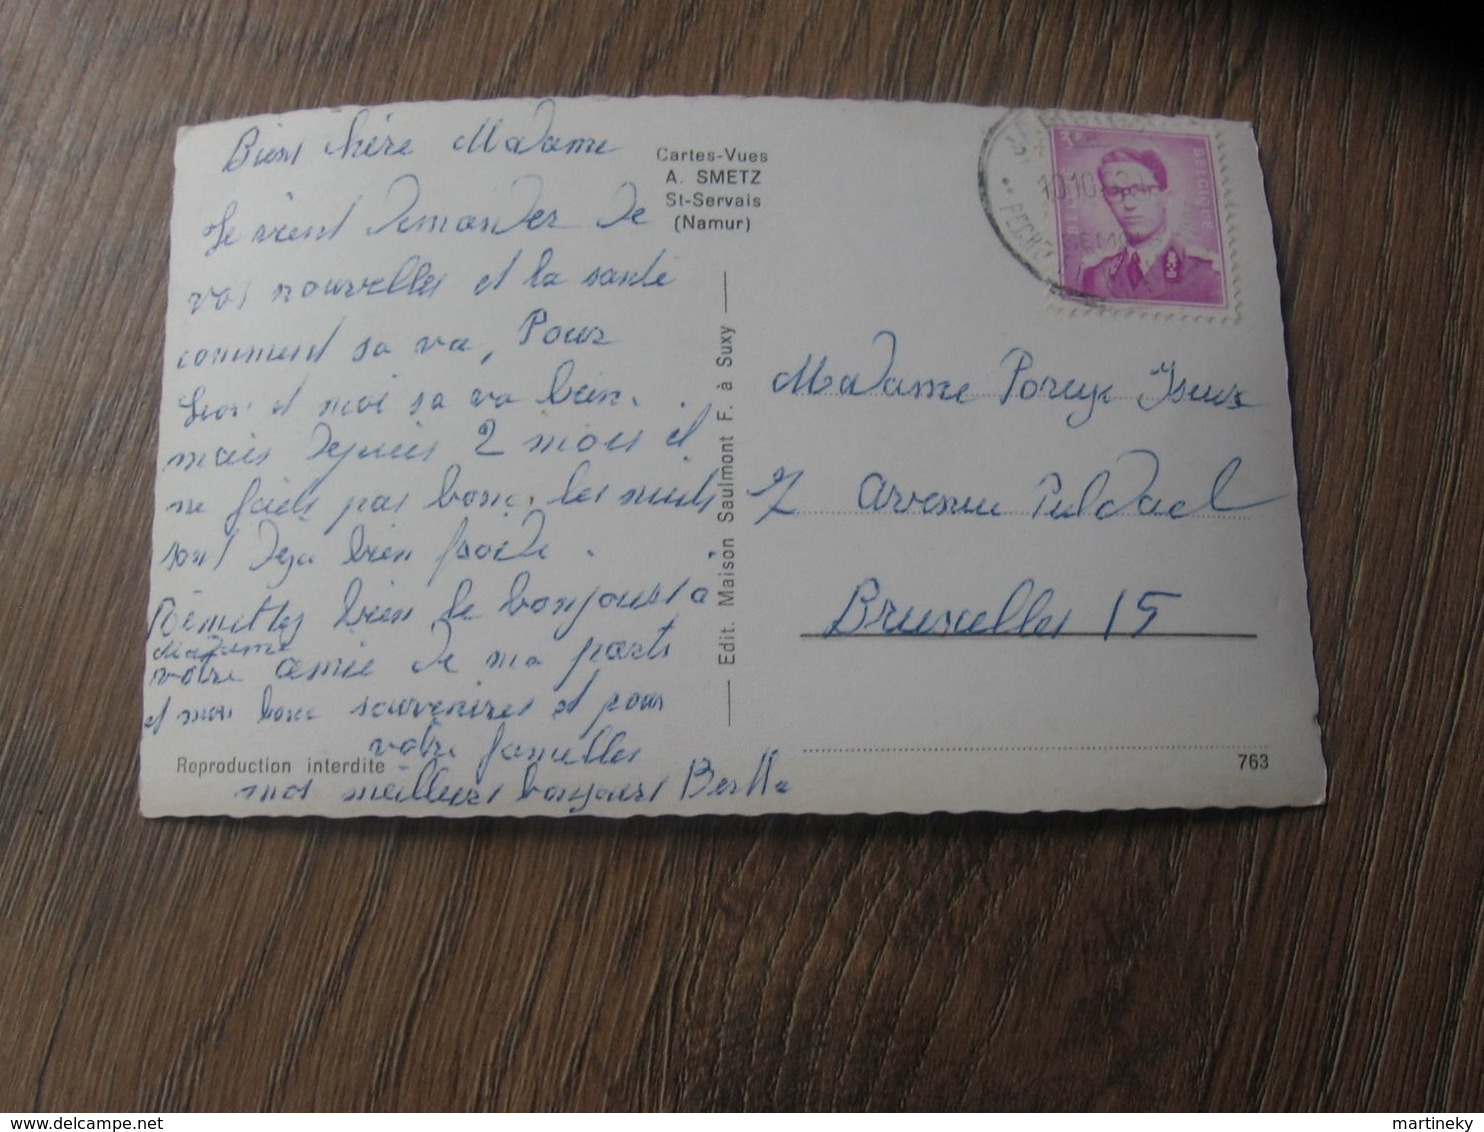 Bien chère Madame
Je vient demander de
vos nouvelles et la santé
comment sa va, Pour
Leon et moi sa va bien.
mais depuis 2 mois il
ne faids pas bonc. les nuits
sont deja bien froide.
Remettez bien le bonjours a
Madame
votre amie de ma parts
et mon bonc souvenires et pour
votre famille
mes meilleurs bonjours Bertha
Cartes-Vues
A. SMETZ
St-Servais
(Namur)
Edit. Maison Saulmont F. à Suxy
Reproduction interdite
3F
BELGIQUE
10.10
SEMOIS
Madame
7 avenue
Bruxelles 15
763
martineky